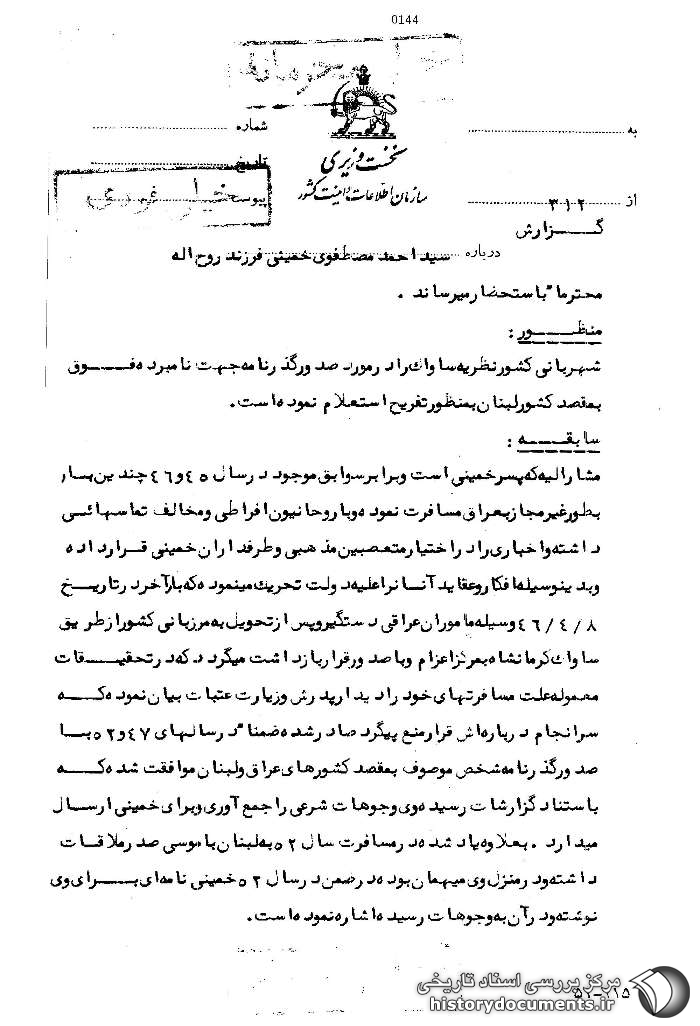 0144
به
شماره
نخست وزیری
تاریخ
سازمان اطلاعات و امنیت کشور
از ۳۱۲
پیوست
گـــزارش
درباره سید احمد مصطفوی خمینی فرزند روح اله
محترما" باستحضار میرساند .
منظـــور :
شهربانی کشور نظریه ساواک را در مورد صدور گذرنامه جهت نامبرده فـــوق
بمقصد کشور لبنان بمنظور تفریح استعلام نموده است .
سابقـــه :
مشارالیه که پسر خمینی است و برابر سوابق موجود در سال ۴۵ و ۴۶ چندین بـار
بطور غیر مجاز بعراق مسافرت نموده و با روحانیون افراطی و مخالف تماسهائـی
داشته و اخباری را در اختیار متعصبین مذهبی و طرفداران خمینی قرار داده
و بدینوسیله افکار و عقاید آنانرا علیه دولت تحریک مینموده که بار آخر در تاریـخ
۴۶/۴/۸ وسیله ماموران عراقی دستگیر و پس از تحویل به مرزبانی کشور از طریق
ساواک کرمانشاه بمرکز اعزام و با صدور قرار بازداشت میگردد که در تحقیقـات
معموله علت مسافرتهای خود را دیدار پدرش و زیارت عتبات بیان نموده کـه
سرانجام درباره اش قرار منع پیگرد صادر شده ضمنا" در سالهای ۴۷ و ۵۲ بـا
صدور گذرنامه شخص موصوف بمقصد کشورهای عراق و لبنان موافقت شده کـه
باستناد گزارشات رسیده وی وجوهات شرعی را جمع آوری و برای خمینی ارسـال
میدارد . بعلاوه یاد شده در مسافرت سال ۵۲ به لبنان با موسی صدر ملاقـات
داشته و در منزل وی میهمان بوده در ضمن در سال ۵۲ خمینی نامه ای بـرای وی
نوشته و در آن به وجوهات رسیده اشاره نموده است .
مرکز بررسی اسناد تاریخی
historydocuments.ir